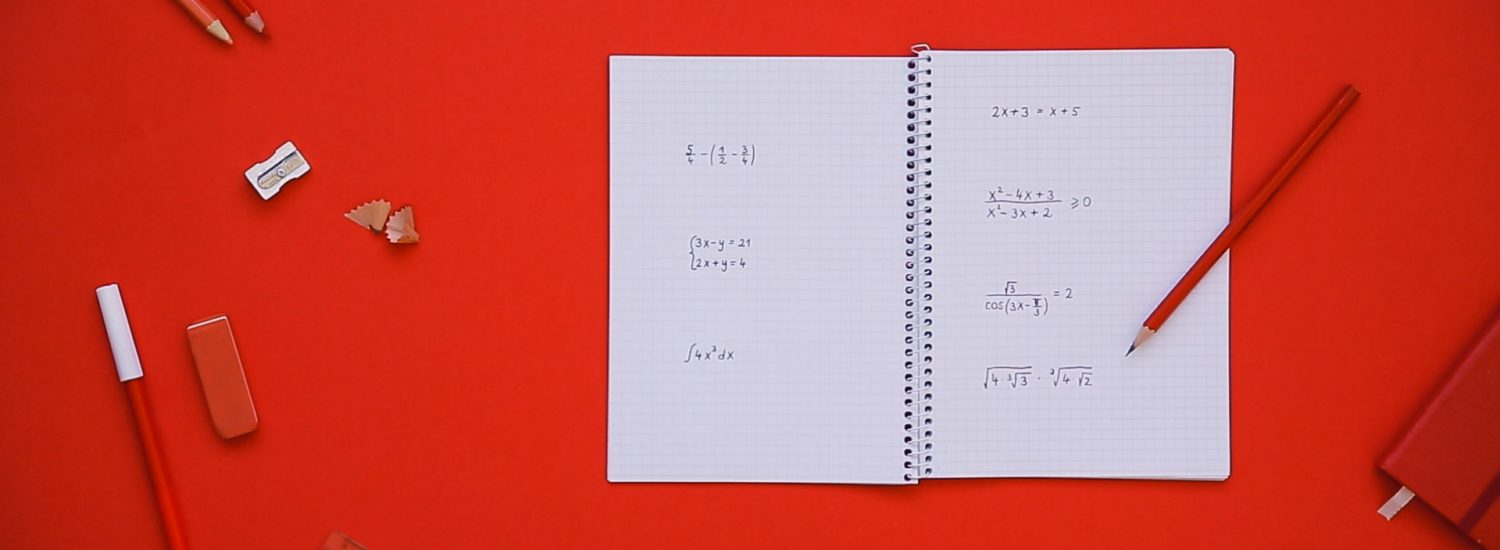 5/4 - (1/2 - 3/4)
{3x-y = 21
2x+y = 4
∫4x³dx
2x+3 = x+5
(x²-4x+3)/(x²-3x+2) ⩾ 0
√3/cos(3x-π/3) = 2
√(4·³√3) · ³√(4·√2)